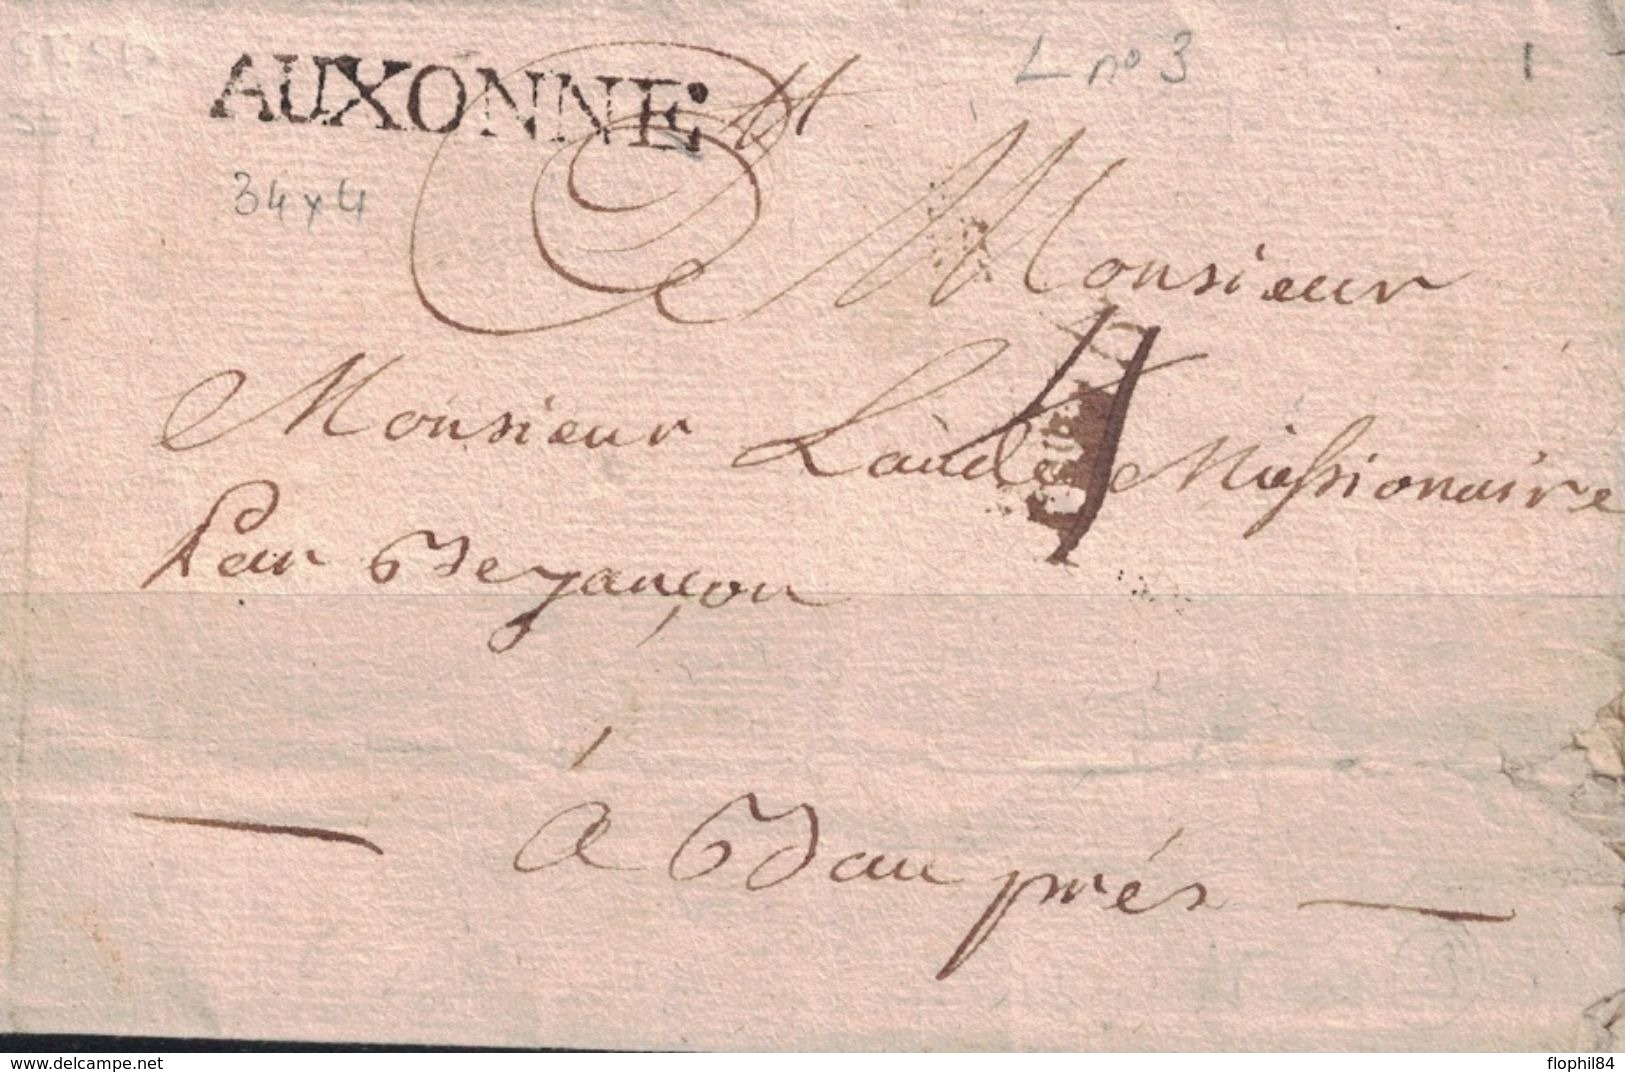 AUXONNE
L nº 3
34 x 4
A Monsieur
Monsieur Laude Missionaire
Par Bezançon
à Beauprés
delcampe.net
flophil84